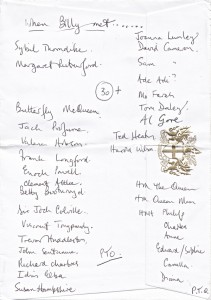 When Billy met ......
Sybil Thorndike
Margaret Rutherford.
30 +
Butterfly McQueen
Jack Profumo.
Helene
Frank Longford.
Enoch Powell
Clement Attlee
Betty Boothroyd
Sir Jock Colville.
Vincent
Trevor Huddleston
John Sentamu
Richard Chartres
Idris Elba
Susan Hampshire
P.T.O.
Joanna Lumley
David Cameron
Sam "
Ade Ade?
Mo Farah
Tom Daley.
Al Gore
Ted Heath
Harold Wilson
HM The Queen
HM Queen Mum
HRH Philip
Charles
Anne
Edward/Sophie
Camilla
Diana
P.T.O